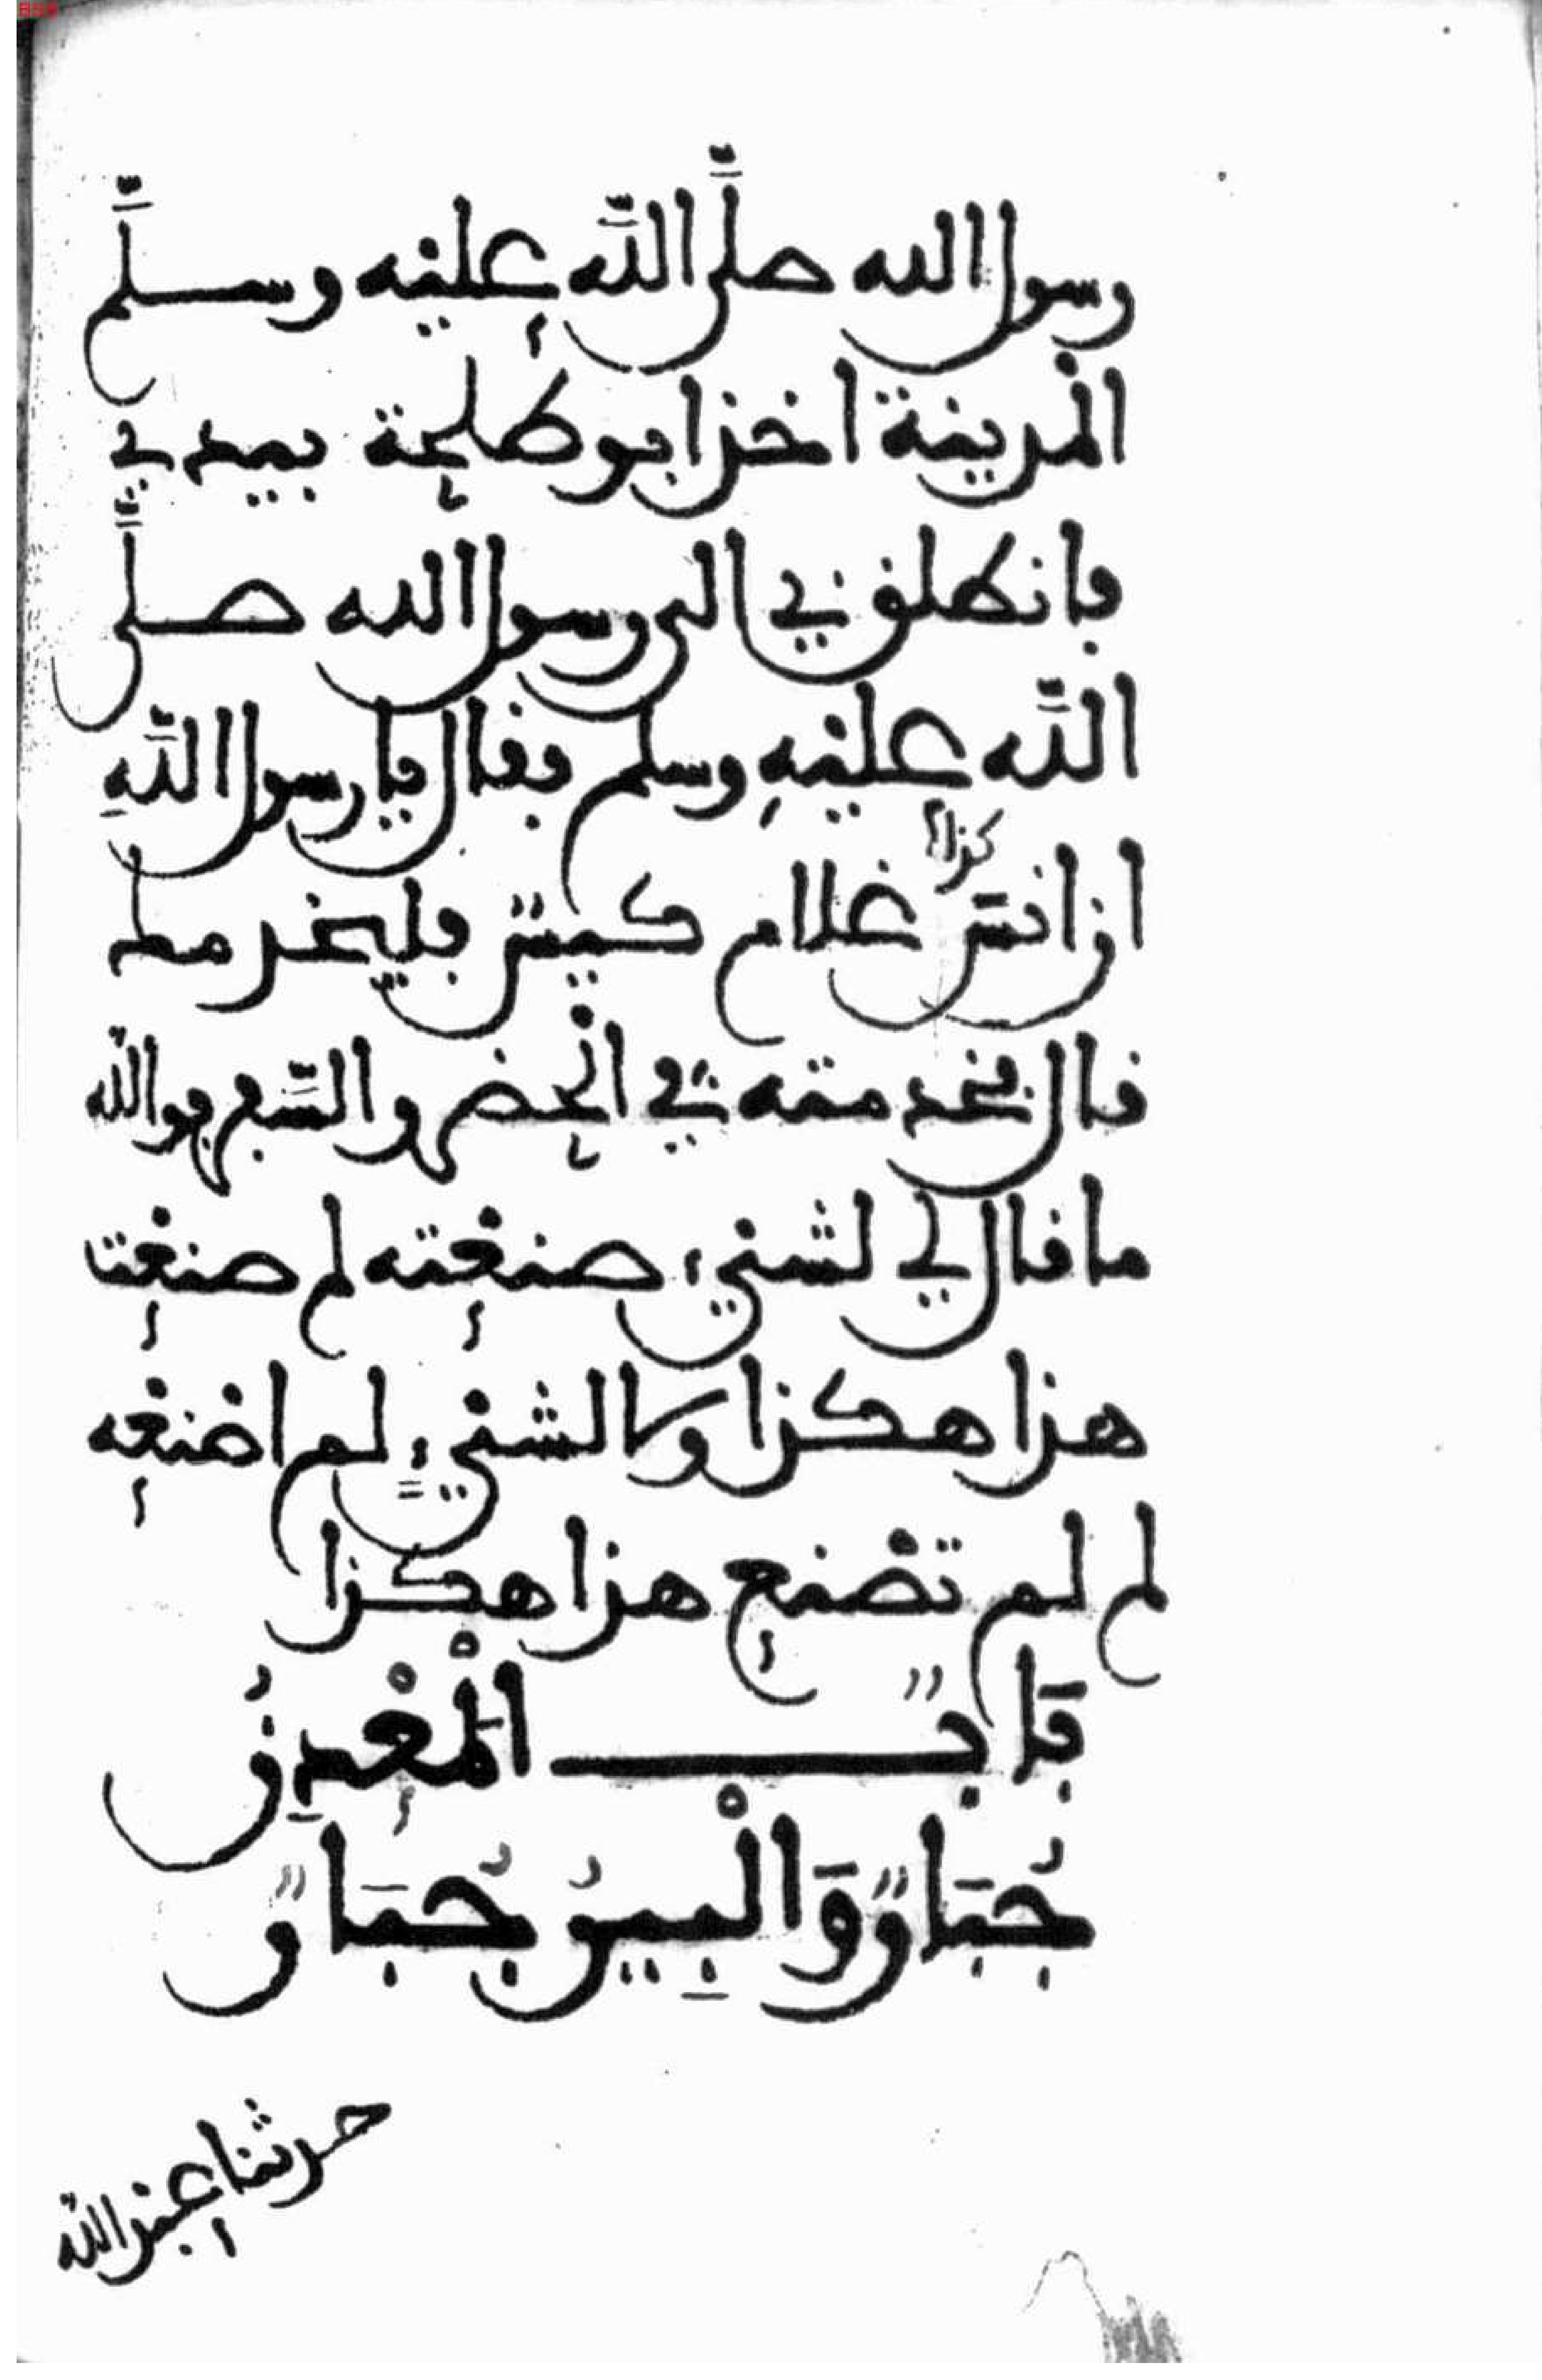 رسول الله صلَّى اللَّه عليْه وسلَّم
المْدينة اخذ ابو طلحة بيدي
فانطلق بي الى رسول الله صلَّى
اللَّه عليْهِ وسلم فقال يا رسول اللَّهِ
كذا
ان انسَ غلام كيّس فليخدمك
قال فخدمته في الْحضر والسَّفر فوالله
ما قال لي لشيْء صنعْته لم صنعْت
هذا هكذا ولا لشيْءٍ لم اصْنعْه
لم لم تصْنع هذا هكذا
بَابٌ الْمعْدِنُ
جُبَارٌ وَالْبِيرُ جُبَارٌ
حدثنا عبد الله